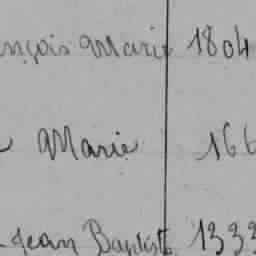 nçois Marie 1804
Marie 166
Jean Baptiste 1333